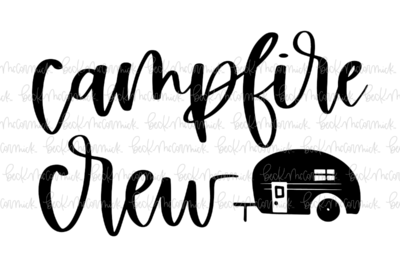 campfire
crew